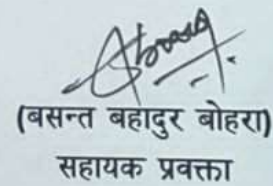 (बसन्त बहादुर बोहरा)
सहायक प्रवक्ता